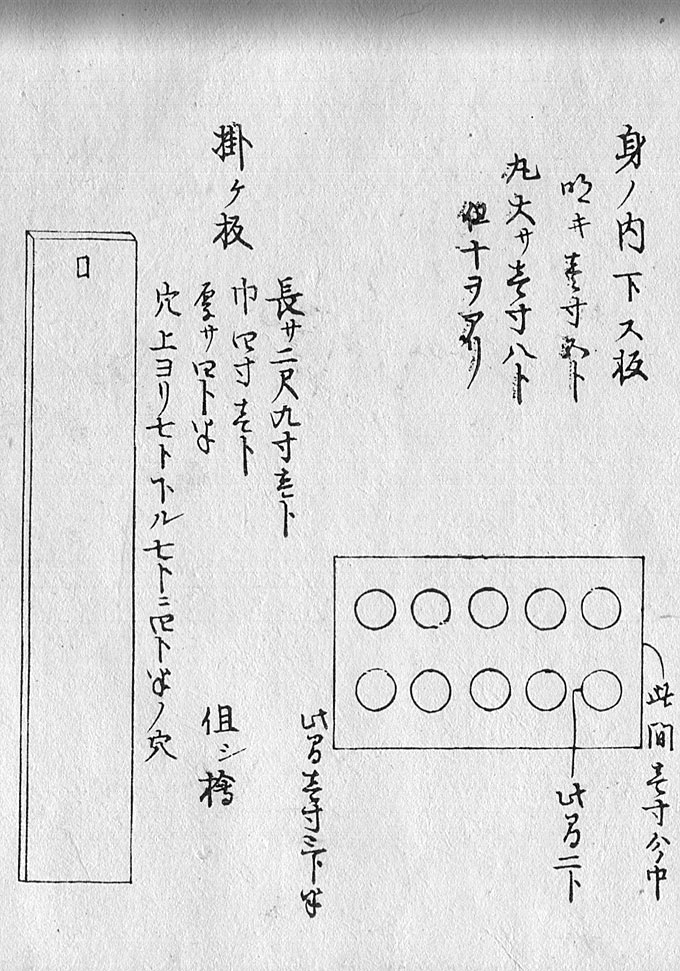 身ノ内下ス板
明キ壱寸五ト
丸大サ壱寸八ト
但十ヲアリ
此間壱寸分中
此間二ト
此間壱寸三ト半
掛ケ板
長サ二尺九寸壱ト
巾四寸壱ト
厚サ四ト半
但シ檜
穴上ヨリ七ト下ル七ト二四ト半ノ穴